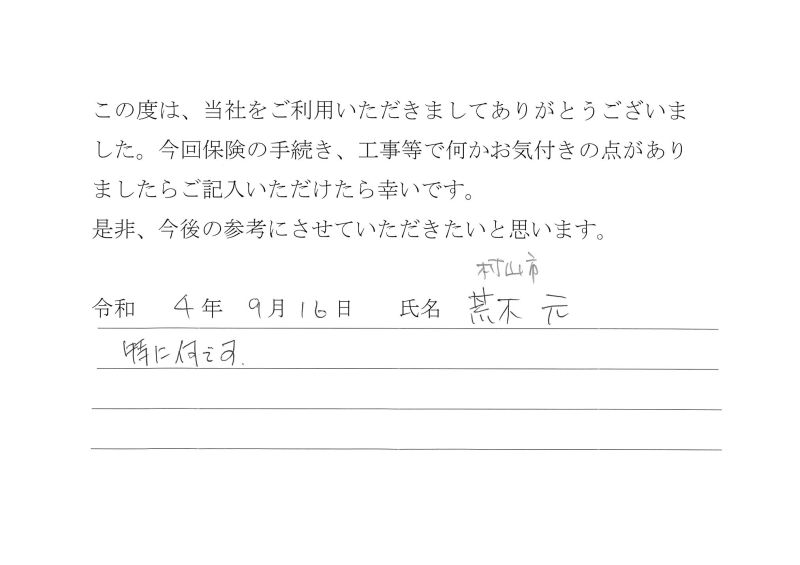 この度は、当社をご利用いただきましてありがとうございま
した。今回保険の手続き、工事等で何かお気付きの点があり
ましたらご記入いただけたら幸いです。
是非、今後の参考にさせていただきたいと思います。
村山市
令和 4年 9月16日 氏名 荒木 元
特に